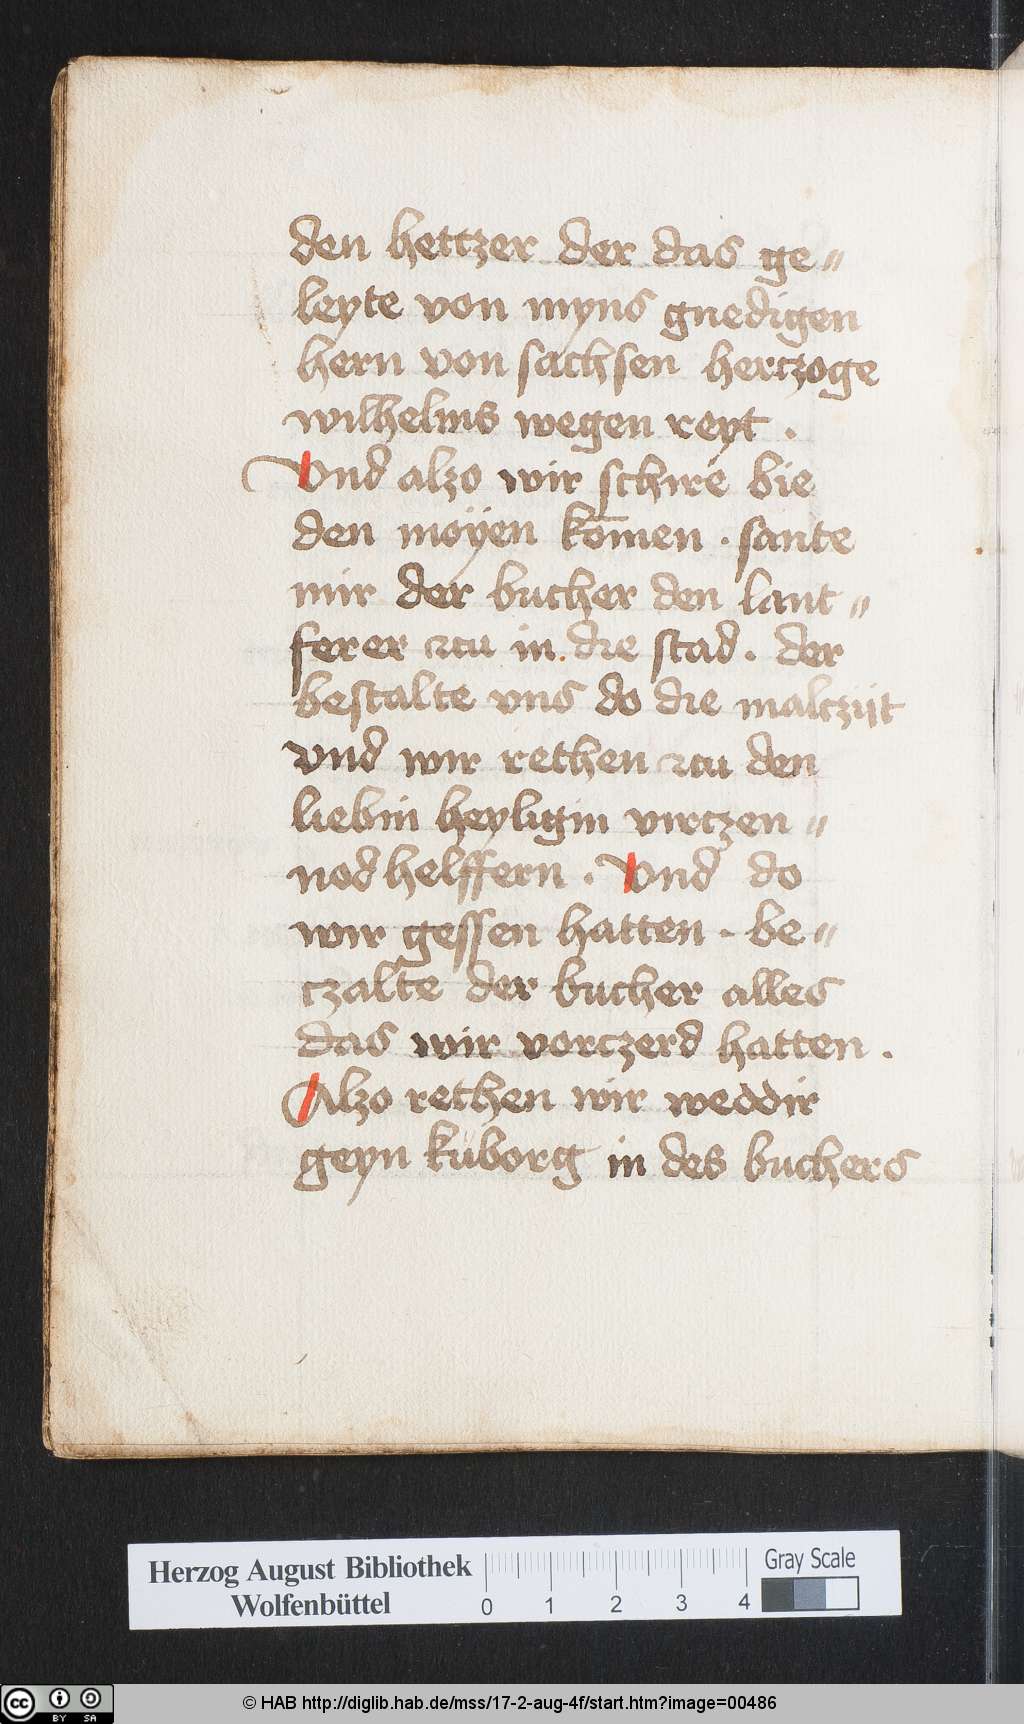 den hettzer der das ge〃
leyte von myns gnedigen
hern von sachsen herczoge
wilhelms wegen reyt .
Vnd alzo wir schire bie
den moÿen kom̄en . sante
mir der bucher den lant〃
ferer zcu in die stad . der
bestalte vns do die malczijt
vnd wir rethen zcu den
liebin heyligin virczen〃
nod helffern . Vnd do
wir gessen hatten . be〃
czalte der bucher alles
das wir vorczerd hatten .
Alzo rethen wir weddir
geyn kuborg in des buchers
Herzog August Bibliothek
Wolfenbüttel
0 1 2 3 4
Gray Scale
cc BY SA
© HAB http://diglib.hab.de/mss/17-2-aug-4f/start.htm?image=00486